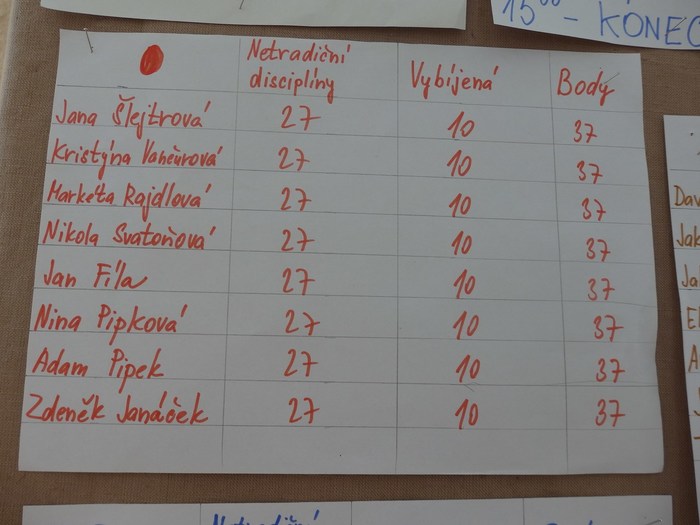 15⁰⁰ - KONEC
Netradiční
disciplíny
Vybíjená
Body
Jana Šlejtrová 27 10 37
Kristýna Vančurová 27 10 37
Markéta Rajdlová 27 10 37
Nikola Svatoňová 27 10 37
Jan Fíla 27 10 37
Nina Pipková 27 10 37
Adam Pipek 27 10 37
Zdeněk Janáček 27 10 37
Dav
Jak
Ja
El
A
Netradiční